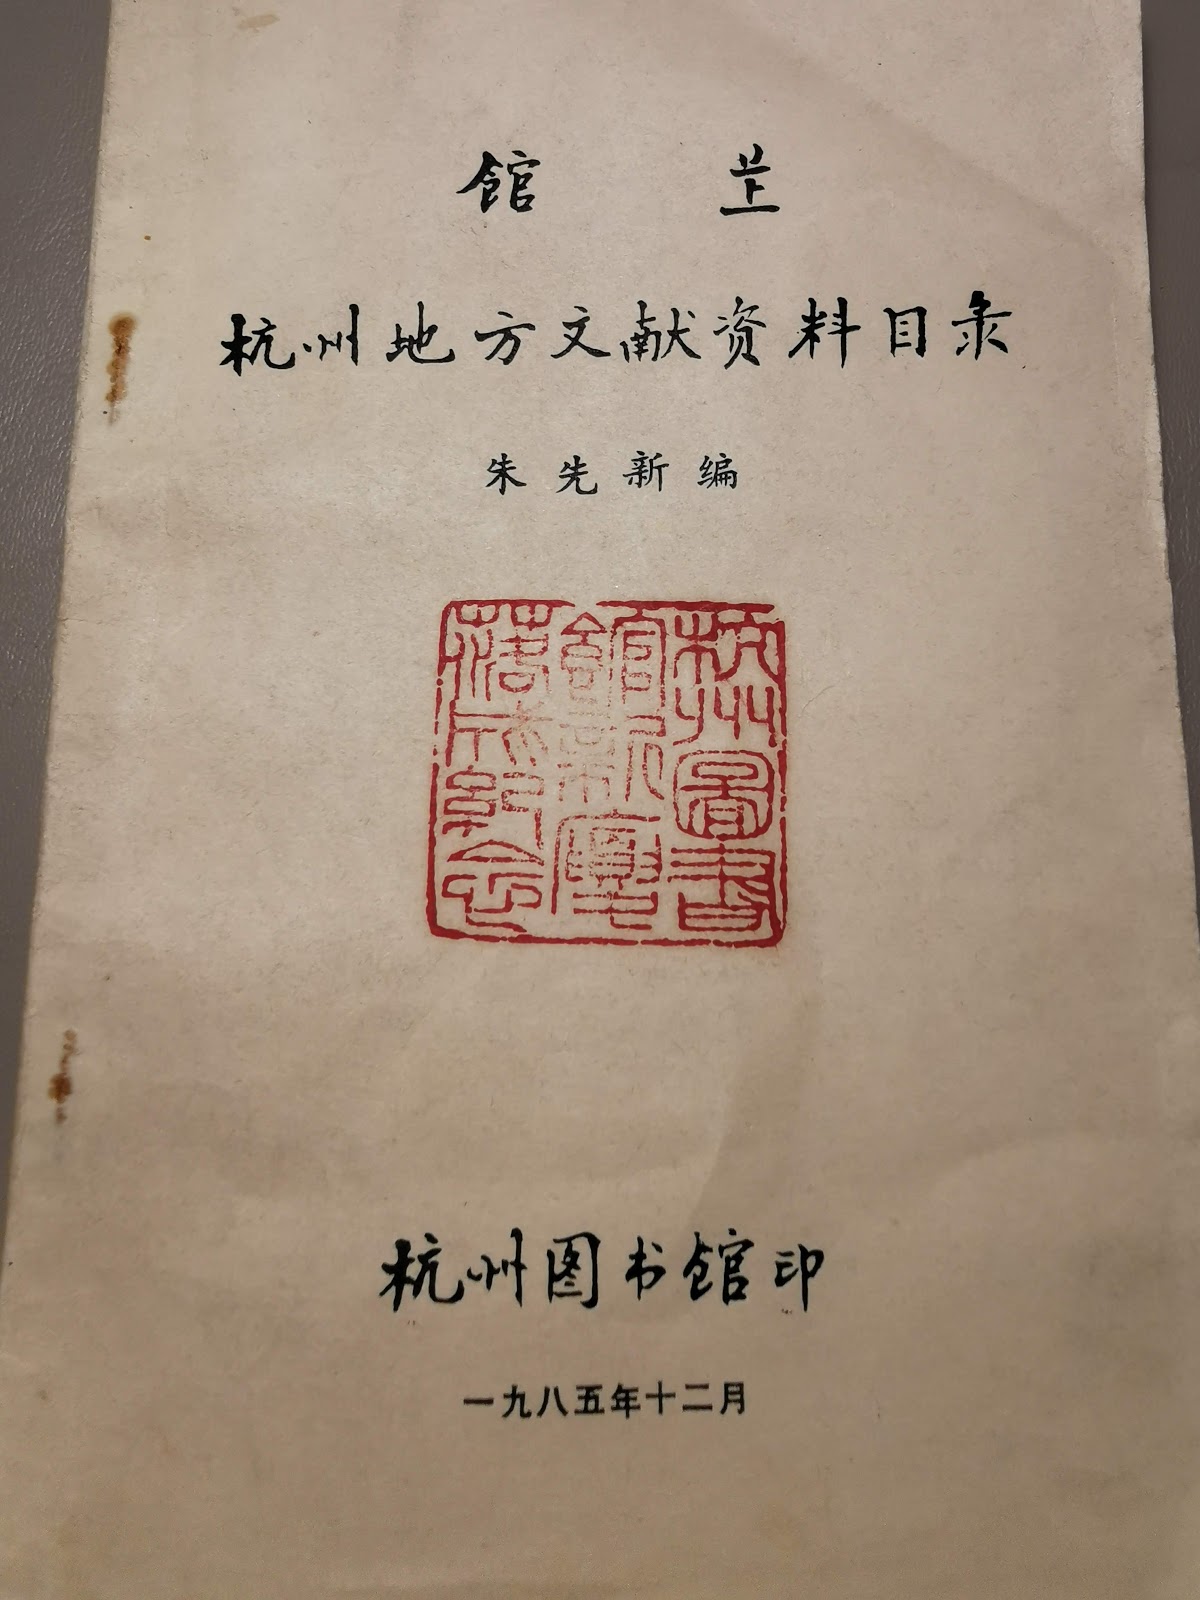 馆
杭州地方文献资料目录
朱先新编
杭州圖書
館新廈
落成紀念
杭州图书馆印
一九八五年十二月